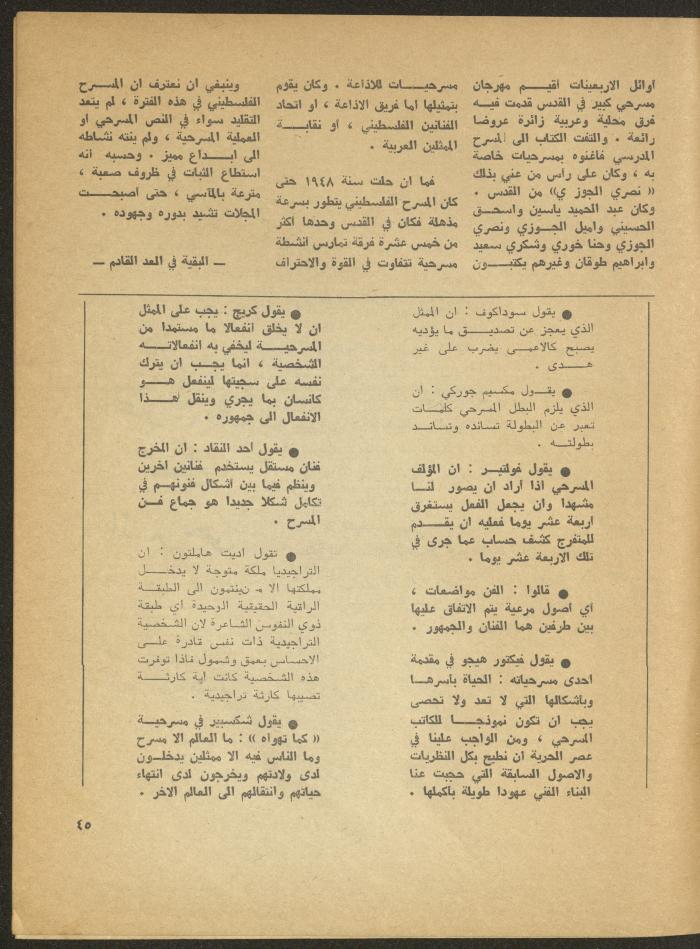 اوائل الاربعينات اقيم مهرجان
مسرحي كبير في القدس قدمت فيه
فرق محلية وعربية زائرة عروضا
رائعة . والتفت الكتاب الى المسرح
المدرسي فأغنوه بمسرحيات خاصة
به ، وكان على راس من عني بذلك
« نصري الجوزي » من القدس .
وكان عبد الحميد ياسين واسحق
الحسيني واميل الجوزي ونصري
الجوزي وحنا خوري وشكري سعيد
وابراهيم طوقان وغيرهم يكتبون
مسرحيات للاذاعة . وكان يقوم
بتمثيلها اما فريق الاذاعة ، او اتحاد
الفنانين الفلسطيني ، او نقابة
الممثلين العربية .
فما ان حلت سنة ١٩٤٨ حتى
كان المسرح الفلسطيني يتطور بسرعة
مذهلة فكان في القدس وحدها اكثر
من خمس عشرة فرقة تمارس انشطة
مسرحية تتفاوت في القوة والاحتراف
وينبغي ان نعترف ان المسرح
الفلسطيني في هذه الفترة ، لم يتعد
التقليد سواء في النص المسرحي او
العملية المسرحية ، ولم ينته نشاطه
الى ابداع مميز . وحسبه انه
استطاع الثبات في ظروف صعبة ،
مترعة بالمآسي ، حتى أصبحت
المجلات تشيد بدوره وجهوده .
— البقية في العدد القادم —
● يقول سوداكوف : ان الممثل
الذي يعجز عن تصديق ما يؤديه
يصبح كالاعمى يضرب على غير
هدى .
● يقول مكسيم جوركي : ان
الذي يلزم البطل المسرحي كلمات
تعبر عن البطولة تسانده وتساند
بطولته .
● يقول فولتير : ان المؤلف
المسرحي اذا أراد ان يصور لنا
مشهدا وان يجعل الفعل يستغرق
اربعة عشر يوما فعليه ان يقدم
للمتفرج كشف حساب عما جرى في
تلك الاربعة عشر يوما .
● قالوا : الفن مواضعات ،
اي اصول مرعية يتم الاتفاق عليها
بين طرفين هما الفنان والجمهور .
● يقول فيكتور هيجو في مقدمة
احدى مسرحياته : الحياة بأسرها
وبأشكالها التي لا تعد ولا تحصى
يجب ان تكون نموذجا للكاتب
المسرحي ، ومن الواجب علينا في
عصر الحرية ان نطيح بكل النظريات
والاصول السابقة التي حجبت عنا
البناء الفني عهودا طويلة بأكملها .
● يقول كريج : يجب على الممثل
ان لا يخلق انفعالا ما مستمدا من
المسرحية ليخفي به انفعالاته
الشخصية ، انما يجب ان يترك
نفسه على سجيتها لينفعل هو
كانسان بما يجري وينقل هذا
الانفعال الى جمهوره .
● يقول أحد النقاد : ان المخرج
فنان مستقل يستخدم فنانين آخرين
وينظم فيما بين أشكال فنونهم في
تكامل شكلا جديدا هو جماع فن
المسرح .
● تقول اديت هاملتون : ان
التراجيديا ملكة متوجة لا يدخل
مملكتها الا من ينتمون الى الطبقة
الراقية الحقيقية الوحيدة اي طبقة
ذوي النفوس الشاعرة لان الشخصية
التراجيدية ذات نفس قادرة على
الاحساس بعمق وشمول فاذا توفرت
هذه الشخصية كانت أية كارثة
تصيبها كارثة تراجيدية .
● يقول شكسبير في مسرحية
« كما تهواه » : ما العالم الا مسرح
وما الناس فيه الا ممثلين يدخلون
لدى ولادتهم ويخرجون لدى انتهاء
حياتهم وانتقالهم الى العالم الآخر .
٤٥